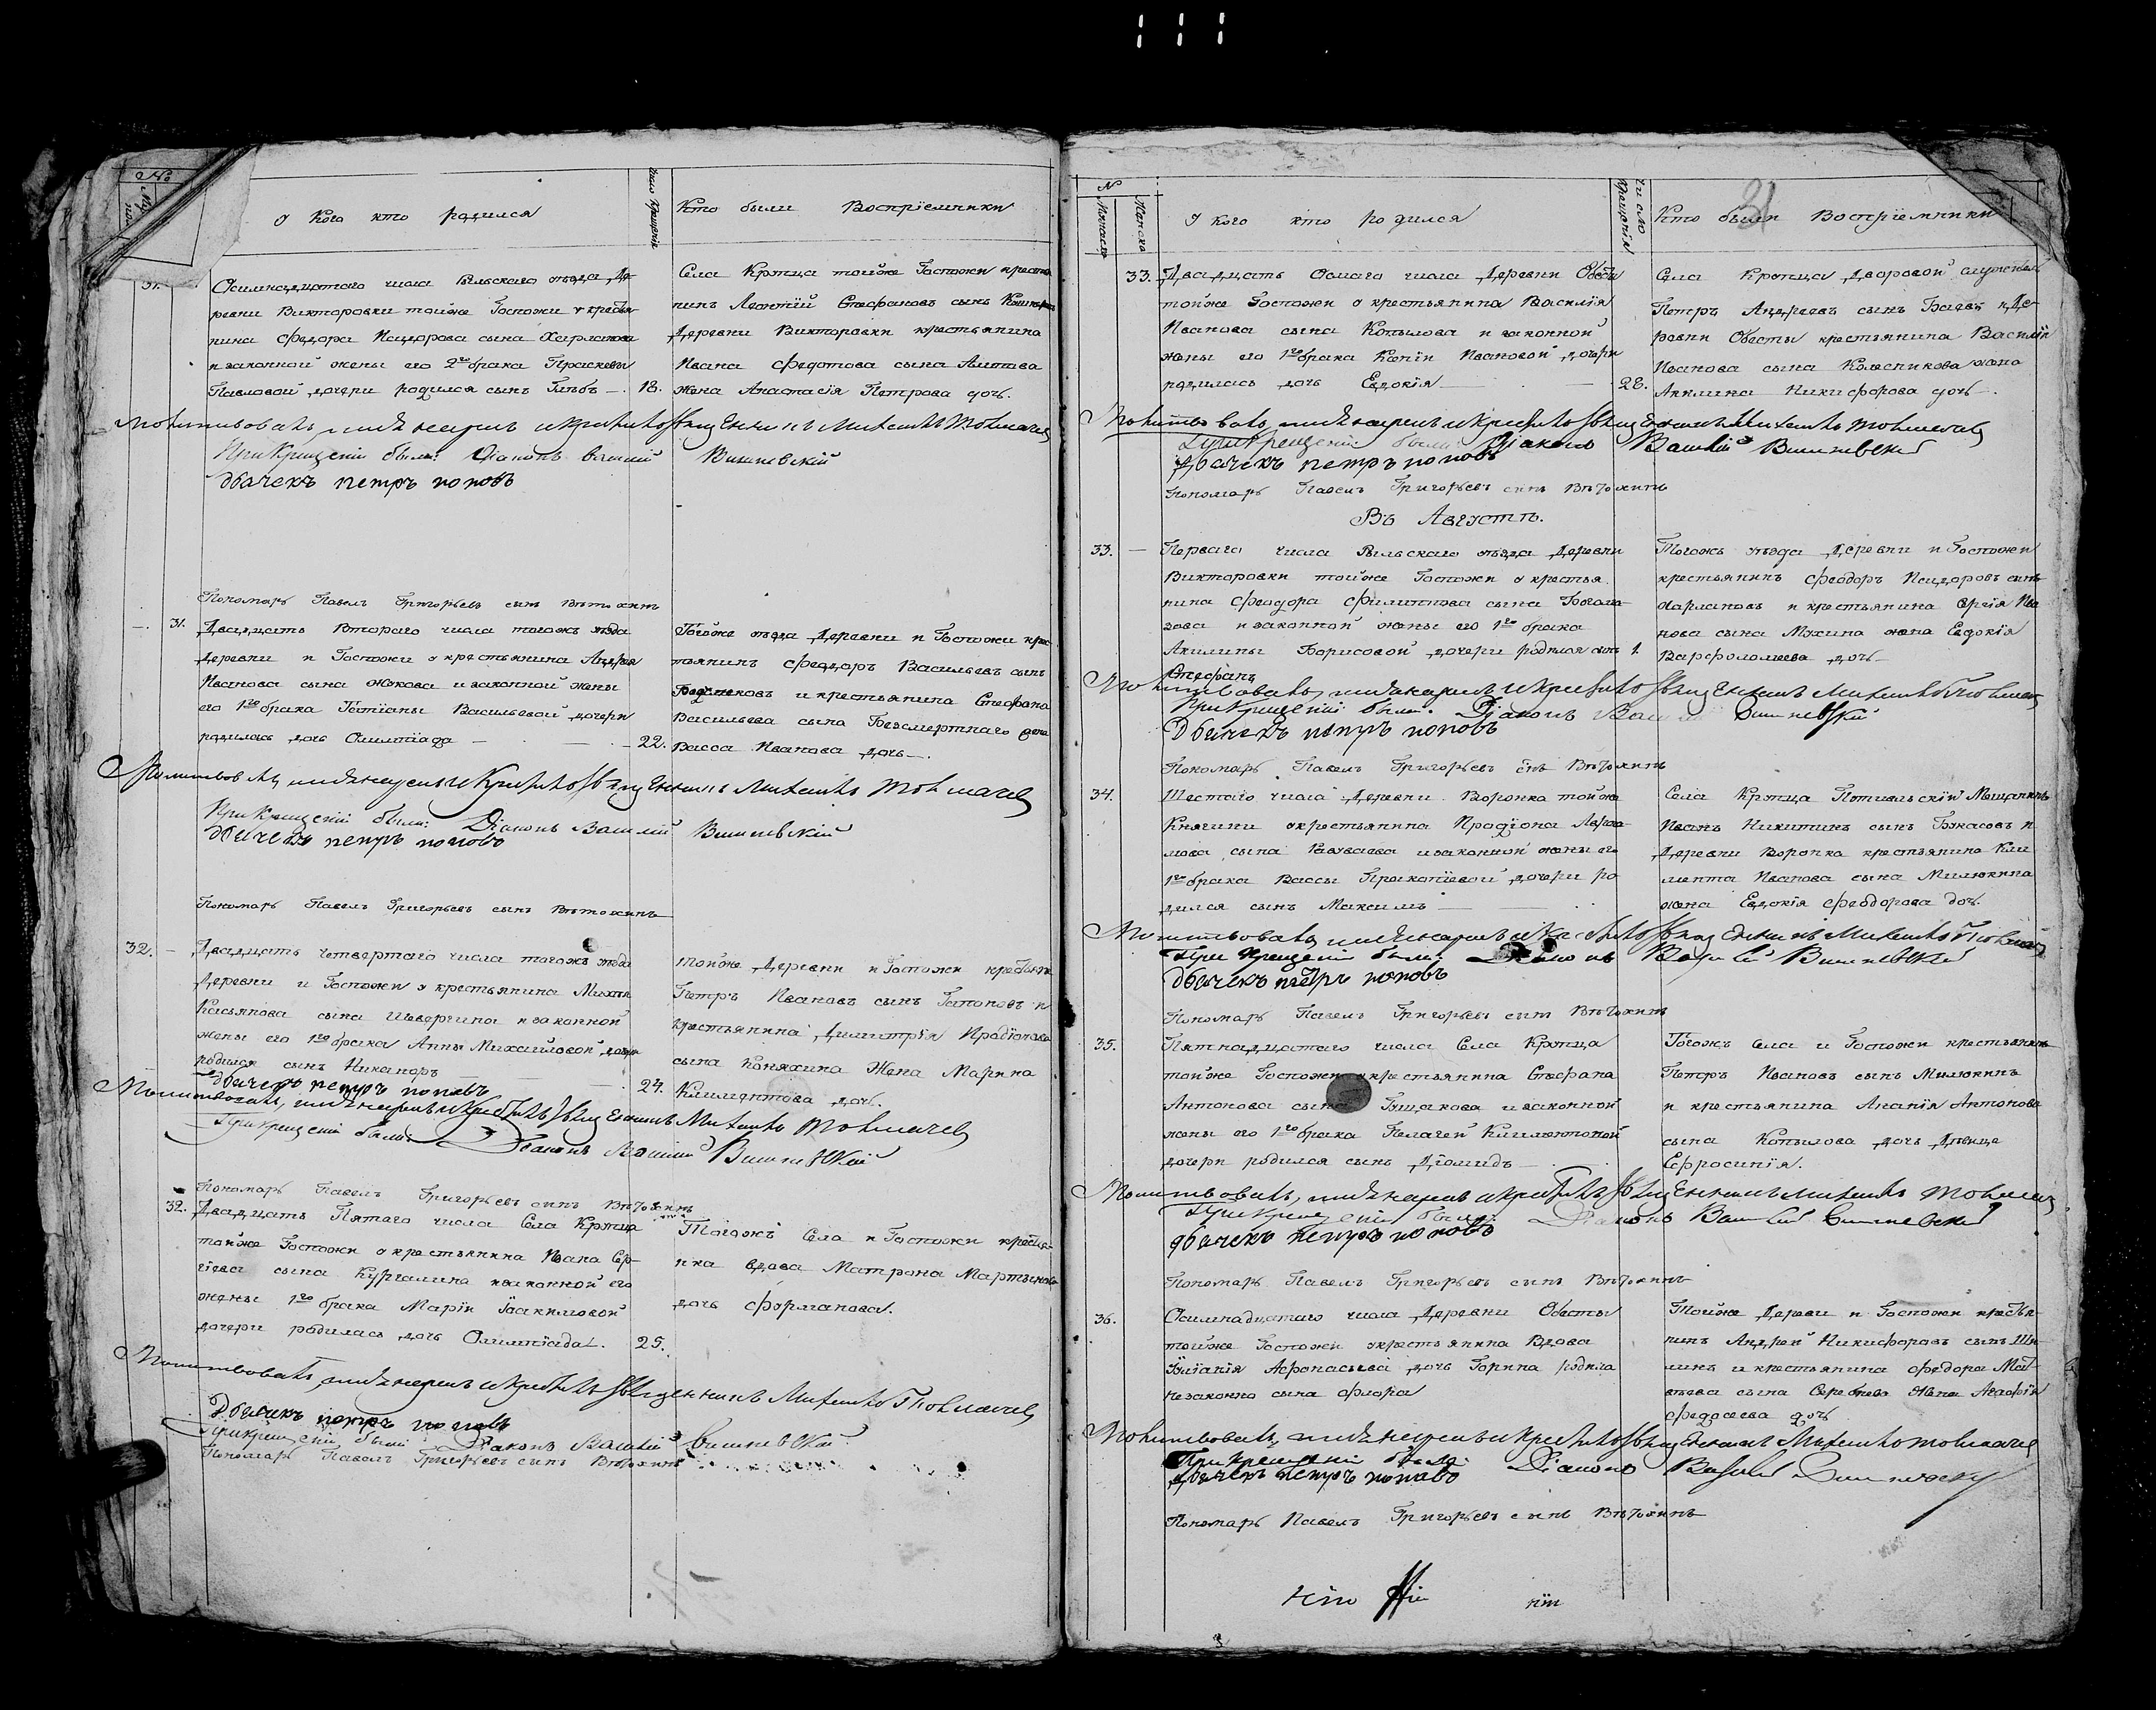 №
У Кого кто родился
Число Крещенія
Кто были Воспріемники
31.
Осимнадцатого числа Рыльского уезда Де-
ревни Викторовки тойже Госпожи у кресьтя-
нина Федора Исидорова сына Харланова
и законной жены его 2го брака Праскевы
Павловой дочери родился сынъ Глѣбъ — 18.
Села Крупца тойже Госпожи крестья
нинъ Леонтій Стефановъ сынъ
Деревни Викторовки крестьянина
Ивана Федотова сына
жена Анастасія Петрова дочь.
Молитвовалъ, имя нарекъ и крестилъ Священникъ Михаилъ Толмачев
При Крещеніи были: Діаконъ Василій Вишневскій
Дьячекъ петръ поповъ
Пономарь Павелъ Григорьевъ сынъ Вѣтохинъ
— 31.
Двадцать Втораго числа тогожъ уезда
Деревни и Госпожи у крестьянина Андрея
Иванова сына Жукова и законной жены
его 1го брака Татіаны Васильевой дочери
родилась дочь Олимпіада — 22.
Тогоже уезда Деревни и Госпожи крес
тьянинъ Феодоръ Васильевъ сынъ
и крестьянина Стефана
Васильева сына Безсмертнаго жена
Васса Иванова дочь —.
Молитвовалъ, имя нарекъ и Крестилъ Священникъ Михаилъ Толмачев
При Крещеніи были: Діаконъ Василій Вишневскій
Дьячекъ петръ поповъ
Пономарь Павелъ Григорьевъ сынъ Вѣтохинъ
32. —
Двадцать четвертаго числа тогожъ уезда
Деревни и Госпожи у крестьянина
Касьянова сына Шевергина и законной
жены его 1го брака Анны Михайловой дочери
родился сынъ Никаноръ 24.
тойже Деревни и Госпожи крестьянин
Петръ Ивановъ сынъ Гапоновъ и
крестьянина Димитрія Иродіонова
сына Коняхина Жена Марина
Климентова дочь.
Дьячекъ петръ поповъ
Молитвовалъ, имя нарекъ и Крестилъ Священникъ Михаилъ Толмачев
При крещеніи были: Діаконъ Василій Вишневскій
Пономарь Павелъ Григорьевъ сынъ Вѣтохинъ
32.
Двадцать Пятаго числа Села Крупца
тойже Госпожи у крестьянина Ивана Сер-
гіева сына Кургалина и законной его
жены 1го брака Маріи Іоакимовой
дочери родилась дочь Олимпіада. 25.
Тогожъ Села и Госпожи крестьян-
нка вдова Матрона Мартынова
дочь Фурманова.
Молитвовалъ, имя нарекъ и крестилъ Священникъ Михаилъ Толмачев
Дьячекъ петръ поповъ
При крещеніи были Діаконъ Василій Вишневскій
Пономарь Павелъ Григорьевъ сынъ Вѣтохинъ
N
Мужеска
Женска
У кого кто родился
Число Крещенія
Кто были Воспріемники
31
33.
Двадцать Осмаго числа Деревни Обесты
тойже Госпожи у крестьянина Василія
Иванова сына Копылова и законной
жены его 1го брака Ивановой дочери
родилась дочь Евдокія — 28.
Села Крупца Дворовой служитель
Петръ Андреевъ сынъ и Де-
ревни Обесты крестьянина Василія
Иванова сына Колесникова жена
Акилина Никифорова дочь —.
Молитвовалъ, имя нарекъ и крестилъ Священникъ Михаилъ Толмачев
При Крещеніи были: Діаконъ Василій Вишневскій
Дьячекъ петръ поповъ
Пономарь Павелъ Григорьевъ сынъ Вѣтохинъ
Въ Августѣ.
33. —
Перваго числа Рыльскаго уезда Деревни
Викторовки тойже Госпожи у крестья
нина Феодора Филиппова сына
и законной жены его 1го брака
Акилины Борисовой дочери родился сынъ 1.
Стефанъ
Тогожъ уезда Деревни и Госпожи
крестьянинъ Феодоръ Исидоровъ сынъ
Харлановъ и крестьянина Сергія Ива
нова сына Мухина жена Евдокія
Варфоломеева дочь —
Молитвовалъ, имя нарекъ и крестилъ Священникъ Михаилъ Толмачев
При Крещеніи были: Діаконъ Василій Вишневскій
Дьячекъ петръ поповъ
Пономарь Павелъ Григорьевъ снъ Вѣтохинъ
34.
Шестаго числа Деревни Воронка тойже
Княгини у крестьянина Иродіона
сына и законной жены его
1го брака Вассы Пракопіевой дочери ро
дился сынъ Максимъ —
Села Крупца Путивльскій Мещанинъ
Иванъ Никитинъ сынъ и
Деревни Воронка крестьянина Кли
мента Иванова сына Милюкина
жена Евдокія Феодорова дочь.
Молитвовалъ, имя нарекъ и крестилъ Священникъ Михаилъ Толмачев
При крещеніи были: Діаконъ Василій Вишневскій
Дьячекъ петръ поповъ
Пономарь Павелъ Григорьевъ сынъ Вѣтохинъ
35.
Пятнадцатаго числа Села Крупца
тойже Госпожи у крестьянина Стефана
Антонова сына и законной
жены его 1го брака Пелагеи Климентовой
дочери родился сынъ Діомидъ —
Тогожъ Села и Госпожи крестьянинъ
Петръ Ивановъ сынъ Милюкинъ
и крестьянина Ананія Антонова
сына Копылова дочь Девица
Ефросинія.
Молитвовалъ, имя нарекъ и крестилъ Священникъ Михаилъ Толмачев
При крещеніи были: Діаконъ Василій Вишневскій
дьячекъ петръ поповъ
Пономарь Павелъ Григорьевъ сынъ Вѣтохинъ
36.
Осимнадцатаго числа Деревни Обесты
тойже Госпожи у крестьянина Вдова
Афонасьева дочь родила
незаконно сына Флора
Тойже Деревни и Госпожи крестья
нинъ Андрей Никифоровъ сынъ Ши
линъ и крестьянина Федора Мат
веева сына жена Агафія
Федосеева дочь
Молитвовалъ, имя нарекъ и крестилъ Священникъ Михаилъ Толмачев
При крещеніи были: Діаконъ Василій Вишневскій
Дьячекъ петръ поповъ
Пономарь Павелъ Григорьевъ сынъ Вѣтохинъ